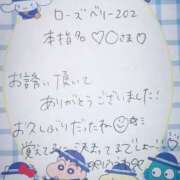 ローズベリー202
本指名♡〇さま♡
お誘い頂いて
ありがとうございました!
お久しぶりだったね
覚えてるに決まってるでしょー!!